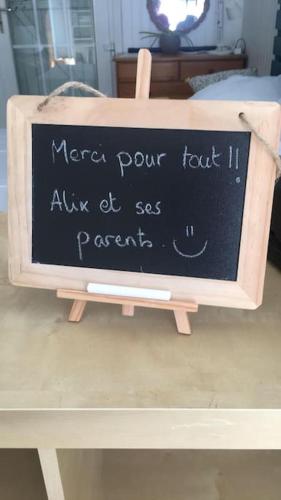 Merci pour tout !!
Alix et ses
parents.